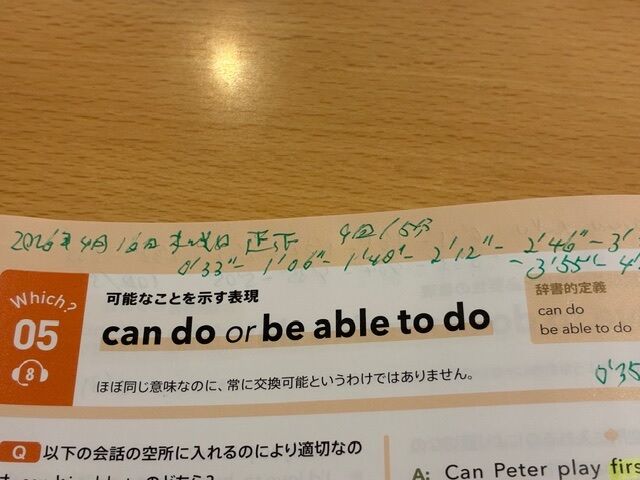 2026年4月16日 木曜日 正正 9回/5分
0'33"- 1'06"- 1'40"- 2'12"- 2'46"- 3'
-3'55"- 4'
Which?
05
8
可能なことを示す表現
can do or be able to do
ほぼ同じ意味なのに、常に交換可能というわけではありません。
辞書的定義
can do
be able to do
0'35
Q 以下の会話の空所に入れるのにより適切なの
A: Can Peter play firs